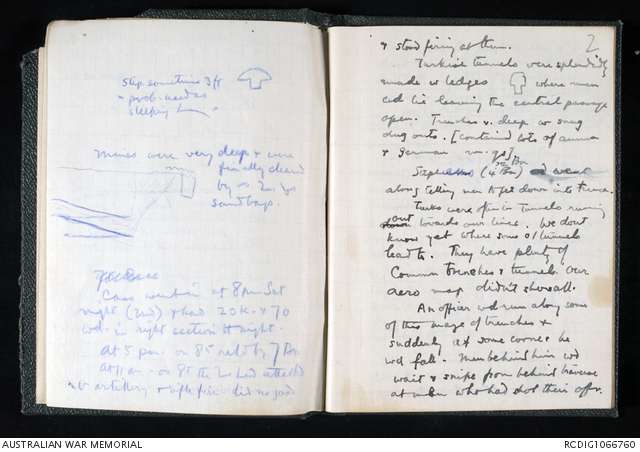 step sometime 3ft
- prob. used as
sleeping
Mines were very deep & were
finally cleared
by
sandbags.
Cass went in at 8 pm Sat
night (2nd) & had 20 k. & 70
wd. in right section tt night.
At 5 pm on 8th reld by 7 Bn
At 11 am on 8th the 2nd had attacked
artillery & rifle fire did no good
2
& stand firing at them.
Turkish tunnels were splendidly
made w ledges where men
cd lie leaving the central passage
open. Trenches v. deep w snug
dug outs. [contained lots of ammn
& German
(4 Bn) went
along telling men to get down into trench.
Turks were often in tunnels running
out towards our lines. We don't
know yet where some of tunnels
lead to. They have plenty of
Common trenches & tunnels our
aero map didn't show all.
An officer wd run along some
of this maze of trenches &
suddenly at some corner he
wd fall. Men behind him wd
wait & snipe from behind traverse
at men who had shot their offr.
AUSTRALIAN WAR MEMORIAL
RCDIG1066760